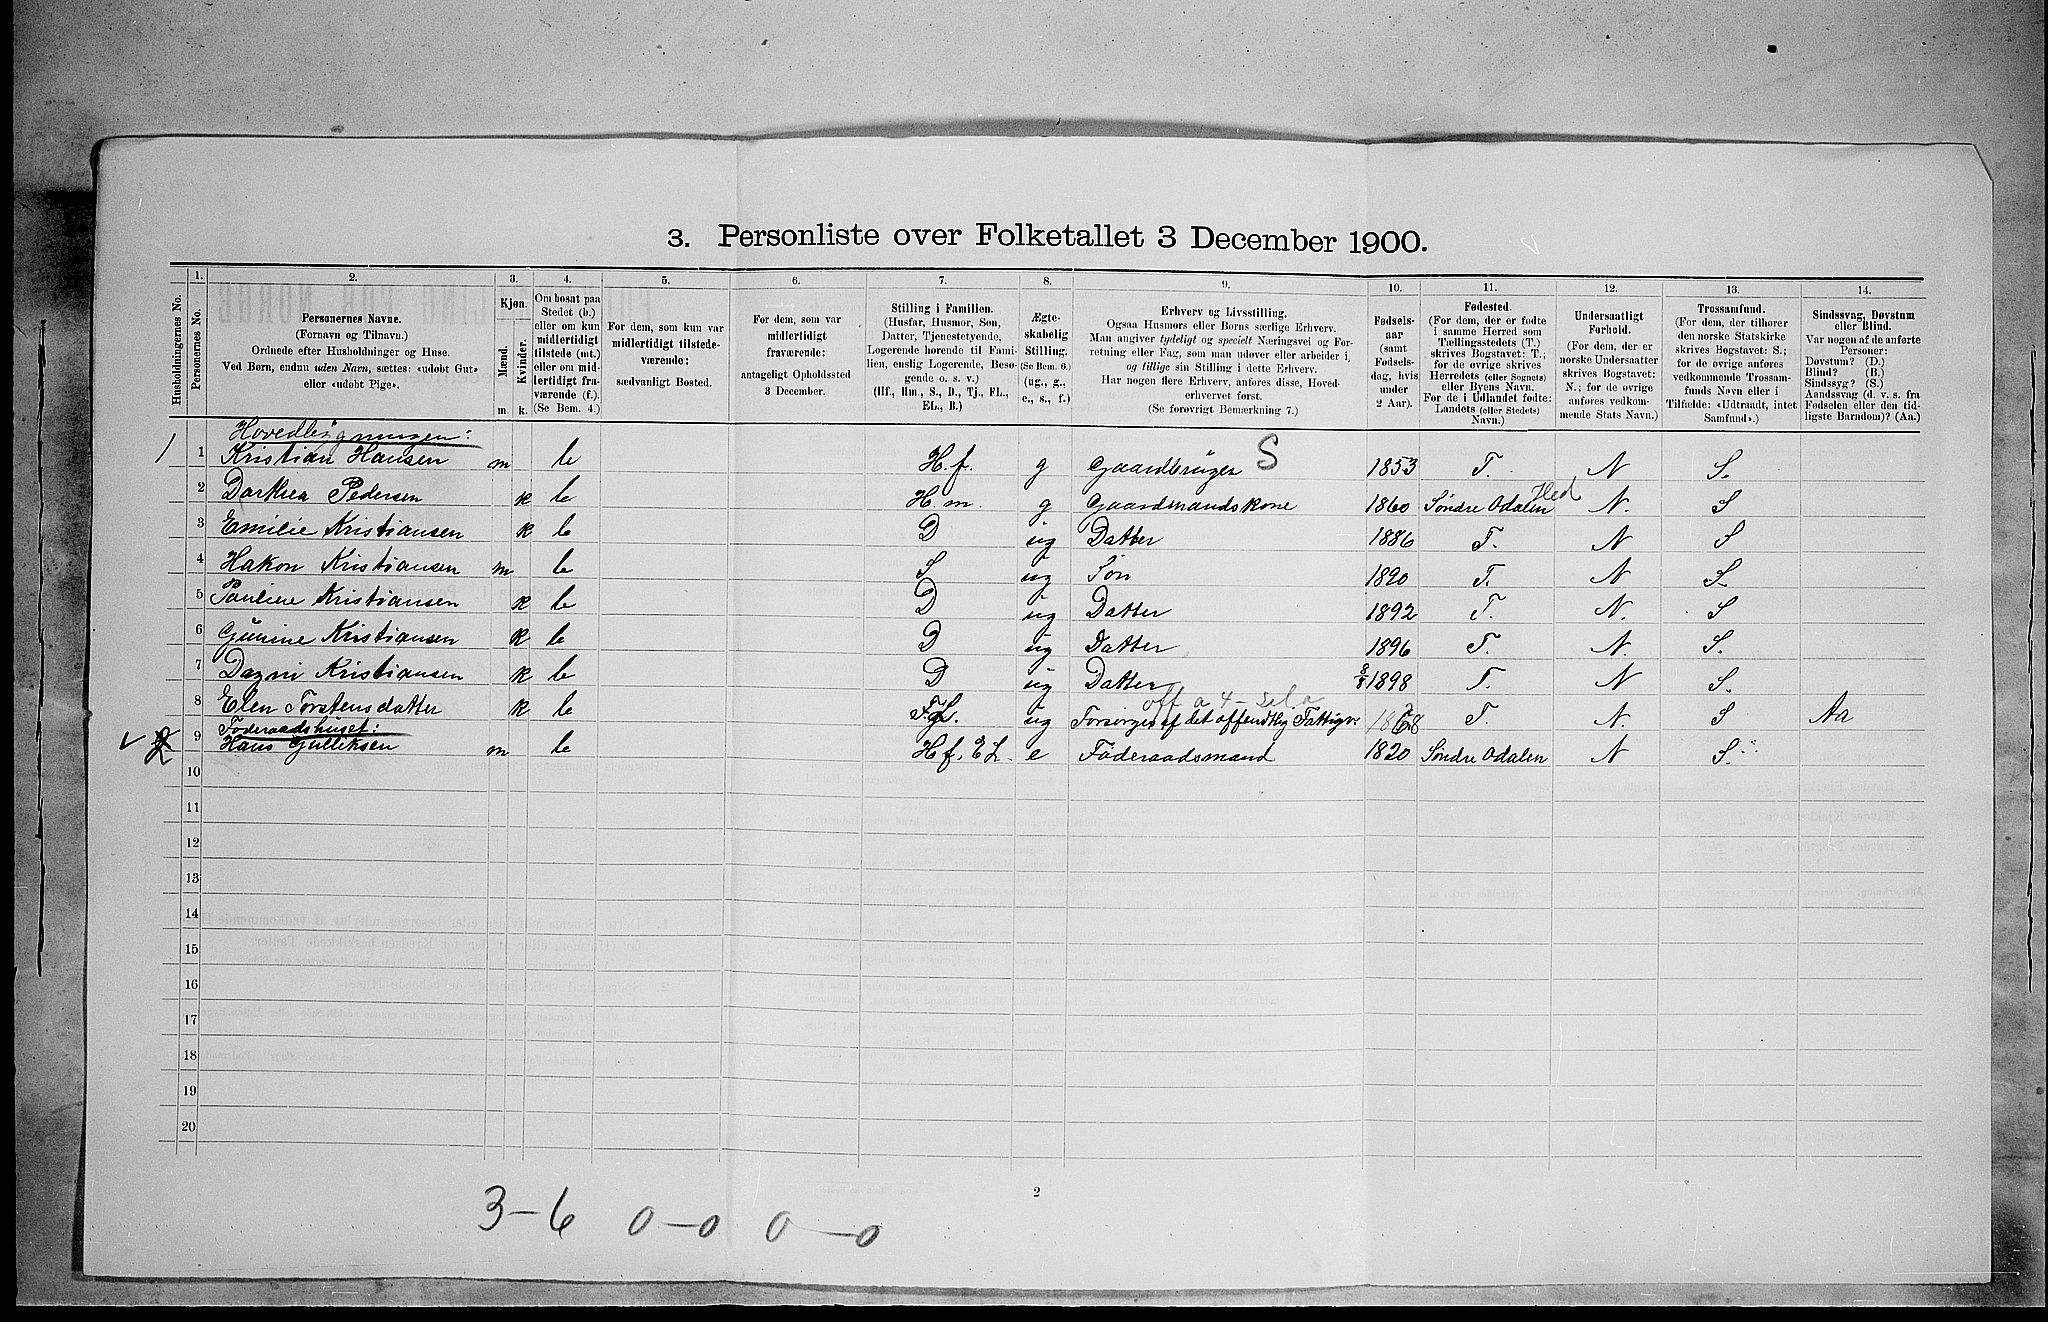 3. Personliste over Folketallet 3 December 1900.
Husholdningernes No.
1.
Personernes No.
2.
Personernes Navne.
(Fornavn og Tilnavn.)
Ordnede efter Husholdninger og Huse.
Ved Børn, endnu uden Navn, sættes: «udøbt Gut»
eller «udøbt Pige».
3.
Kjøn.
Mænd.
Kvinder.
m. k.
4.
Om bosat paa
Stedet (b.)
eller om kun
midlertidigt
tilstede (mt.)
eller om mid-
lertidigt fra-
værende (f.).
(Se Bem. 4.)
5.
For dem, som kun var
midlertidigt tilstede-
værende:
sædvanligt Bosted.
6.
For dem, som var
midlertidigt
fraværende:
antageligt Opholdssted
3 December.
7.
Stilling i Familien.
(Husfar, Husmor, Søn,
Datter, Tjenestetyende,
Logerende hørende til Fami-
lien, enslig Logerende, Besø-
gende o. s. v.)
(Hf., Hm., S., D., Tj., FL.,
EL., B.)
8.
Ægte-
skabelig
Stilling.
(Se Bem. 6.)
(ug., g.,
e., s., f.)
9.
Erhverv og Livsstilling.
Ogsaa Husmors eller Børns særlige Erhverv.
Man angiver tydeligt og specielt Næringsvei og For-
retning eller Fag, som man udøver eller arbeider i,
og tillige sin Stilling i dette Erhverv.
Har nogen flere Erhverv, anføres disse, Hoved-
erhvervet først.
(Se forøvrigt Bemerkning 7.)
10.
Fødsels-
aar
(samt
Fødsels-
dag, hvis
under
2 Aar).
11.
Fødested.
(For dem, der er fødte
i samme Herred som
Tællingsstedets (T.)
skrives Bogstavet: T.;
for de øvrige skrives
Herredets (eller Sognets)
eller Byens Navn.
For de i Udlandet fødte:
Landets (eller Stedets)
Navn.)
12.
Undersaatligt
Forhold.
(For dem, der er
norske Undersaatter
skrives Bogstavet:
N.; for de øvrige
anføres vedkom-
mende Stats Navn.)
13.
Trossamfund.
(For dem, der tilhører
den norske Statskirke
skrives Bogstavet: S.;
for de øvrige anføres
vedkommende Trossam-
funds Navn eller i
Tilfælde: «Udtraadt, intet
Samfund».)
14.
Sindssvag, Døvstum
eller Blind.
Var nogen af de anførte
Personer:
Døvstum? (D.)
Blind? (B.)
Sindssyg? (S.)
Aandssvag (d. v. s. fra
Fødselen eller den tid-
ligste Barndom)? (Aa.)
Hovedbygningen:
1 1 Kristian Hansen m b H.f. g Gaardbruger S 1853 T. N S.
2 Dorthea Pedersen k b H.m. g Gaardmandskone 1860 Søndre Odalen Hed N. S
3 Emilie Kristiansen k b D ug Datter 1886 T. N S
4 Hakon Kristiansen m b S ug Søn 1890 T. N S.
5 Pauline Kristiansen k b D ug Datter 1892 T. N. S
6 Gunine Kristiansen k b D ug Datter 1896 T. N. S.
7 Dagni Kristiansen k b D ug Datter 1898 T. N S.
off a 4
8 Elen Torstensdatter k b F.L. ug Forsørges af det offentlig Fattigv. 1868 T. N. S Aa
Føderaadshuset:
2 9 Hans Gulliksen m b Hf. EL. e Føderaadsmand 1820 Søndre Odalen N S.
10
11
12
13
14
15
16
17
18
19
20
2
3-6 0-0 0-0